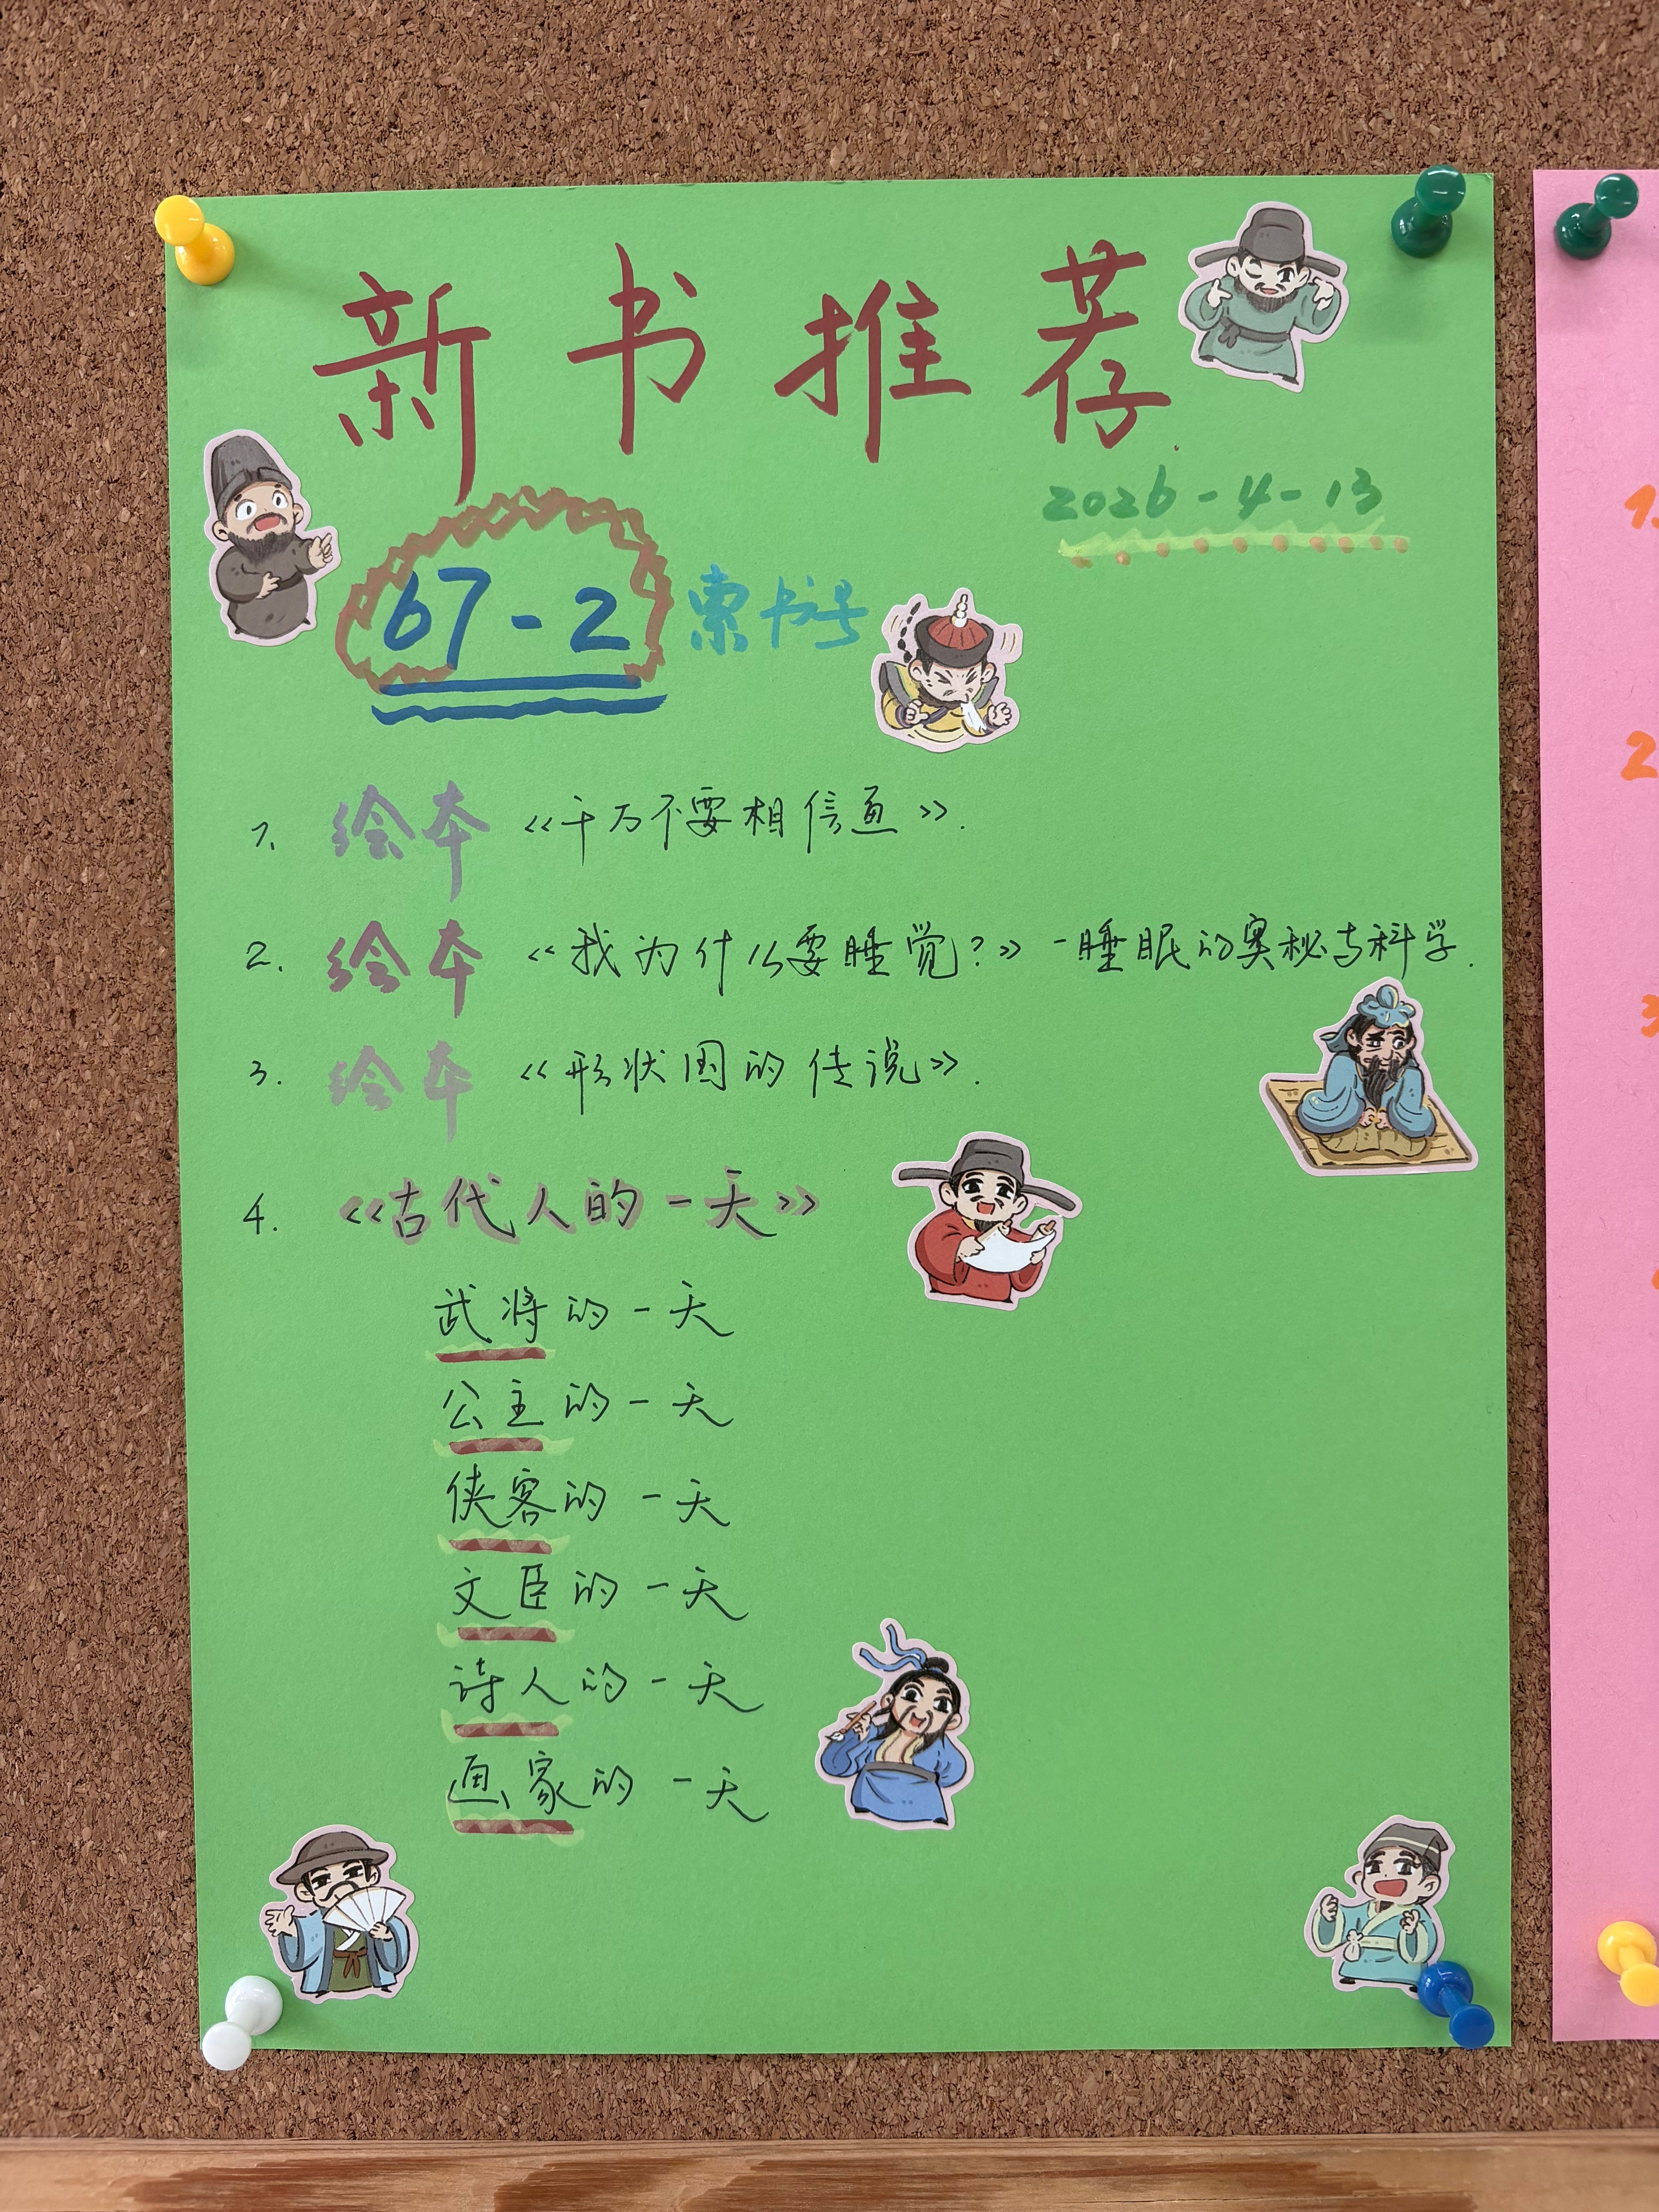 新书推荐
2026-4-13
67-2 索书号
1. 绘本 《千万不要相信画》.
2. 绘本 《我为什么要睡觉?》-睡眠的奥秘与科学.
3. 绘本 《形状国的传说》.
4. 《古代人的一天》
武将的一天
公主的一天
侠客的一天
文臣的一天
诗人的一天
画家的一天
1.
2
3